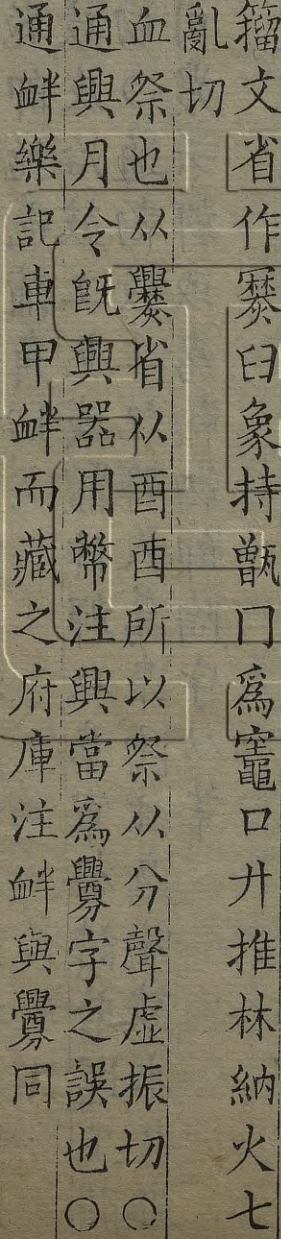 籀文省作爨臼象持甑冂爲竈口廾推林納火七
亂切
血祭也从爨省从酉酉所以祭从分聲虛振切〇
通興月令旣興器用幣注興當爲釁字之誤也〇
通衅樂記車甲衅而藏之府庫注衅與釁同